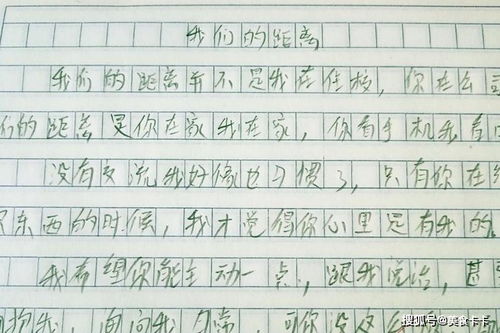 我们的距离
我们的距离并不是我在住校，你在公司
们的距离是你在家我在家，你看手机我看电
没有交流我好像也习惯了，只有你在给
东西的时候，我才觉得你心里是有我的
我希望你能主动一点，跟我说说话，甚
抱我，问问我
搜狐号@美食卡卡